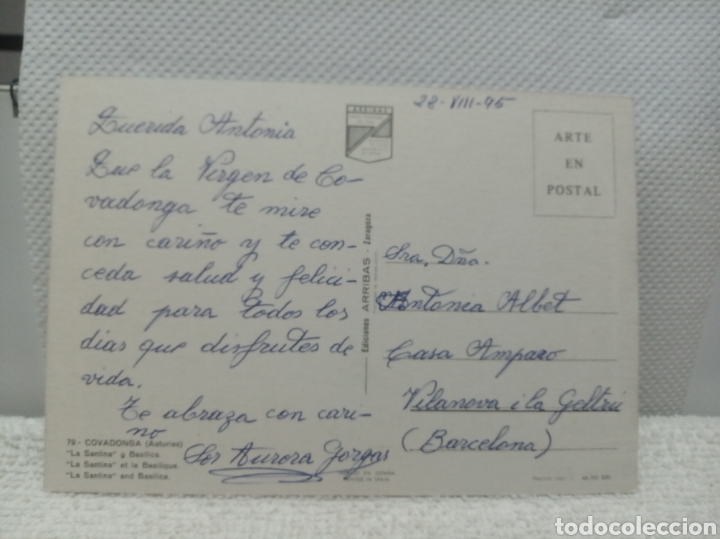 28-VIII-95
Querida Antonia
Que la Virgen de Co-
vadonga te mire
con cariño y te con-
ceda salud y felici-
dad para todos los
dias que disfrutes de
vida.
Te abraza con cari-
ño
Sor Aurora Gorgas
79 - COVADONGA (Asturias)
"La Santina" y Basílica.
"La Santina" et la Basilique.
"La Santina" and Basilica.
Ediciones ARRIBAS - Zaragoza
ARRIBAS
ARTE
EN
POSTAL
Sra. Dña.
Antonia Albet
Casa Amparo
Vilanova i la Geltrú
(Barcelona)
todocoleccion